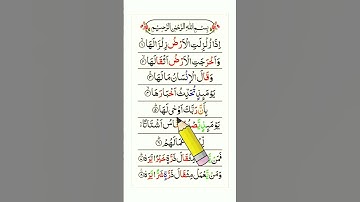 بِسْمِ اللهِ الرَّحْمٰنِ الرَّحِيْمِ
اِذَا زُلْزِلَتِ الْاَرْضُ زِلْزَالَهَا ۝١
وَاَخْرَجَتِ الْاَرْضُ اَثْقَالَهَا ۝٢
وَقَالَ الْاِنْسَانُ مَالَهَا ۝٣
يَوْمَئِذٍ تُحَدِّثُ اَخْبَارَهَا ۝٤
بِاَنَّ رَبَّكَ اَوْحٰى لَهَا ۝٥
يَوْمَئِذٍ النَّاسُ اَشْتَاتًا
اَعْمَالَهُمْ ۝٦
فَمَنْ يَّعْمَلْ مِثْقَالَ ذَرَّةٍ خَيْرًا يَّرَهٗ ۝٧
وَمَنْ يَّعْمَلْ مِثْقَالَ ذَرَّةٍ شَرًّا يَّرَهٗ ۝٨